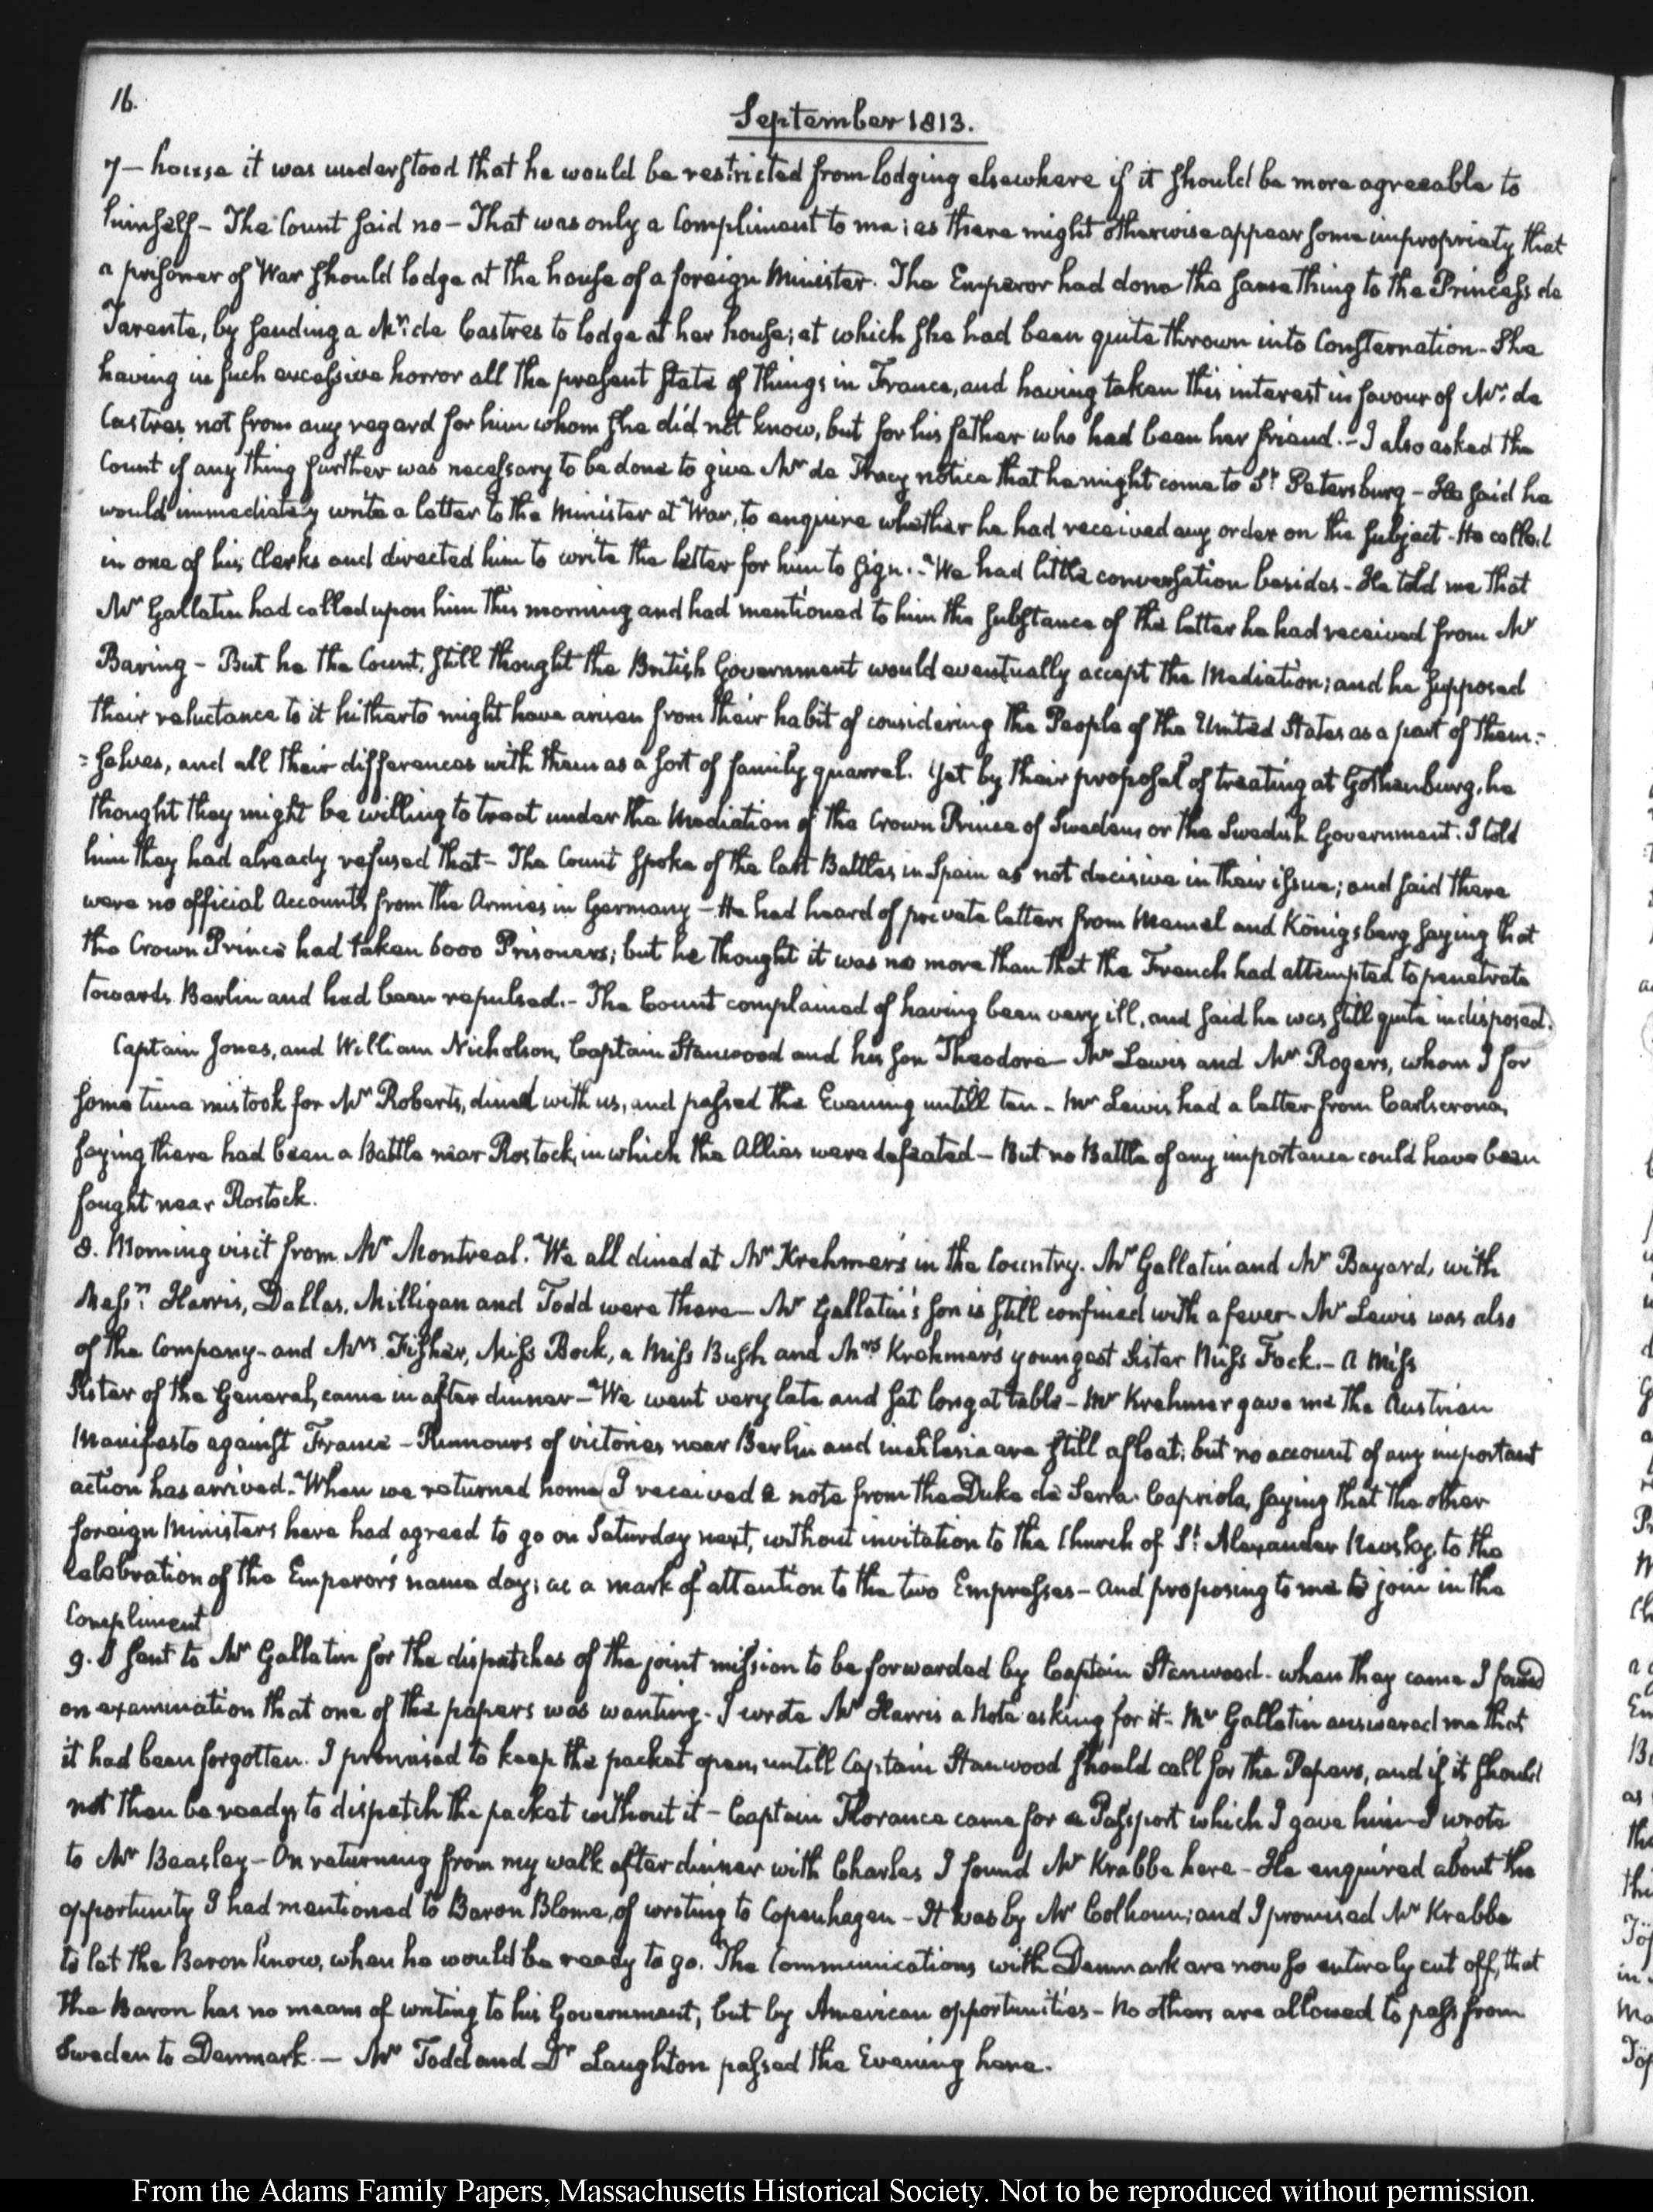 16.
September 1813.
7 — house it was understood that he would be restricted from lodging elsewhere if it should be more agreeable to
himself – The Count said no – That was only a Compliment to me; as there might otherwise appear some impropriety that
a prisoner of War should lodge at the house of a foreign Minister. The Emperor had done the same thing to the Princess de
Tarente, by sending a Mr. de Castres to lodge at her house; at which she had been quite thrown into Consternation – She
having in such excessive horror all the present state of things in France, and having taken this interest in favour of Mr. de
Castres, not from any regard for him whom she did not know, but for his father who had been her friend. – I also asked the
Count if any thing further was necessary to be done to give Mr de Tracy notice that he might come to St Petersburg – He said he
would immediately write a letter to the Minister at War, to enquire whether he had received any order on the subject – He called
in one of his Clerks and directed him to write the letter for him to sign. – We had little conversation besides – He told me that
Mr Gallatin had called upon him this morning and had mentioned to him the substance of the letter he had received from Mr
Baring – But he the Count, still thought the British Government would eventually accept the Mediation; and he supposed
their reluctance to it hitherto might have arisen from their habit of considering the People of the United States as a part of them=
=selves, and all their differences with them as a sort of family quarrel. Yet by their proposal of treating at Gothenburg, he
thought they might be willing to treat under the Mediation of the Crown Prince of Sweden or the Swedish Government. I told
him they had already refused that – The Count spoke of the last Battles in Spain as not decisive in their issue; and said there
were no official Accounts from the Armies in Germany – He had heard of private letters from Memel and Königsberg saying that
the Crown Prince had taken 6000 Prisoners; but he thought it was no more than that the French had attempted to penetrate
towards Berlin and had been repulsed. – The Count complained of having been very ill, and said he was still quite indisposed.
Captain Jones, and William Nicholson, Captain Stanwood and his son Theodore – Mr Lewis and Mr Rogers, whom I for
some time mistook for Mr Roberts, dined with us, and passed the Evening untill ten – Mr Lewis had a letter from Carlscrona,
saying there had been a Battle near Rostock, in which the Allies were defeated – But no Battle of any importance could have been
fought near Rostock.
8. Morning visit from Mr Montreal. We all dined at Mr Krehmer's in the Country. Mr Gallatin and Mr Bayard, with
Messrs. Harris, Dallas, Milligan and Todd were there – Mr Gallatin's son is still confined with a fever – Mr Lewis was also
of the Company – and Mrs. Fisher, Miss Bock, a Miss Bush and Mrs Krehmer's youngest Sister Miss Fock. – A Miss
Sister of the General, came in after dinner – We went very late and sat long at table – Mr Krehmer gave me the Austrian
Manifesto against France – Rumours of victories near Berlin and in Silesia are still afloat; but no account of any important
action has arrived. When we returned home I received a note from the Duke de Serra Capriola, saying that the other
foreign Ministers here had agreed to go on Saturday next, without invitation to the Church of St. Alexander Newsky, to the
celebration of the Emperor's name day; as a mark of attention to the two Empresses – and proposing to me to join in the
Compliment
9. I sent to Mr Gallatin for the dispatches of the joint mission to be forwarded by Captain Stanwood – when they came I found
on examination that one of the papers was wanting – I wrote Mr Harris a Note asking for it – Mr Gallatin answered me that
it had been forgotten. I promised to keep the packet open, untill Captain Stanwood should call for the Papers, and if it should
not then be ready, to dispatch the packet without it – Captain Florance came for a Passport which I gave him – I wrote
to Mr Beasley – On returning from my walk after dinner with Charles I found Mr Krabbe here – He enquired about the
opportunity I had mentioned to Baron Blome, of writing to Copenhagen – It was by Mr Colhoun; and I promised Mr Krabbe
to let the Baron know, when he would be ready to go. The Communications with Denmark are now so entirely cut off, that
the Baron has no means of writing to his Government, but by American opportunities – No others are allowed to pass from
Sweden to Denmark. – Mr Todd and Dr Laughton passed the Evening here.
From the Adams Family Papers, Massachusetts Historical Society. Not to be reproduced without permission.